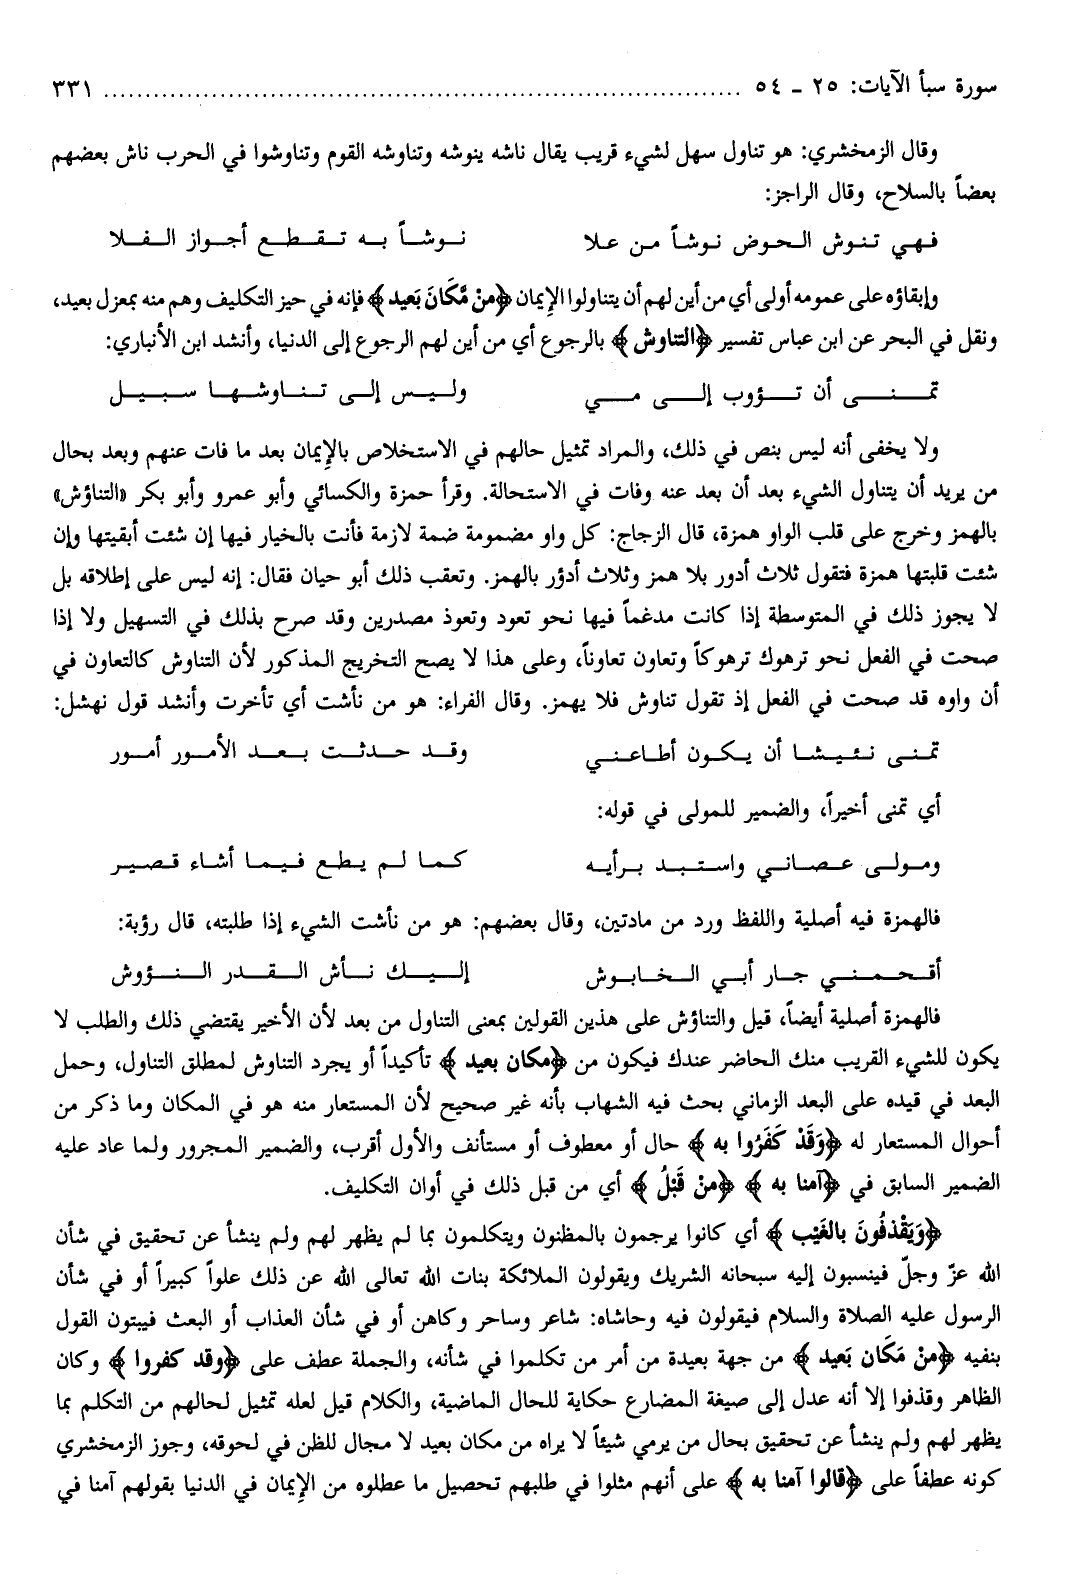 سورة سبأ الآيات: ٢٥ ـ ٥٤ ........................................................................... ٣٣١
وقال الزمخشري: هو تناول سهل لشيء قريب يقال ناشه ينوشه وتناوشه القوم وتناوشوا في الحرب ناش بعضهم
بعضاً بالسلاح، وقال الراجز:
فهي تنوش الحوض نوشاً من علا نوشاً به تقطع أجواز الفلا
وإبقاؤه على عمومه أولى أي من أين لهم أن يتناولوا الإيمان ﴿مِنْ مَّكَانَ بَعيد﴾ فإنه في حيز التكليف وهم منه بمعزل بعيد،
ونقل في البحر عن ابن عباس تفسير ﴿التناوش﴾ بالرجوع أي من أين لهم الرجوع إلى الدنيا، وأنشد ابن الأنباري:
تمنى أن تؤوب إلى مي وليس إلى تناوشها سبيل
ولا يخفى أنه ليس بنص في ذلك، والمراد تمثيل حالهم في الاستخلاص بالإيمان بعد ما فات عنهم وبعد بحال
من يريد أن يتناول الشيء بعد أن بعد عنه وفات في الاستحالة. وقرأ حمزة والكسائي وأبو عمرو وأبو بكر «التناؤش»
بالهمز وخرج على قلب الواو همزة، قال الزجاج: كل واو مضمومة ضمة لازمة فأنت بالخيار فيها إن شئت أبقيتها وإن
شئت قلبتها همزة فتقول ثلاث أدور بلا همز وثلاث أدؤر بالهمز. وتعقب ذلك أبو حيان فقال: إنه ليس على إطلاقه بل
لا يجوز ذلك في المتوسطة إذا كانت مدغماً فيها نحو تعود وتعوذ مصدرين وقد صرح بذلك في التسهيل ولا إذا
صحت في الفعل نحو ترهوك ترهوكاً وتعاون تعاوناً، وعلى هذا لا يصح التخريج المذكور لأن التناوش كالتعاون في
أن واوه قد صحت في الفعل إذ تقول تناوش فلا يهمز. وقال الفراء: هو من نأشت أي تأخرت وأنشد قول نهشل:
تمنى نئيشا أن يكون أطاعني وقد حدثت بعد الأمور أمور
أي تمنى أخيراً، والضمير للمولى في قوله:
ومولى عصاني واستبد برأيه كما لم يطع فيما أشاء قصير
فالهمزة فيه أصلية واللفظ ورد من مادتين، وقال بعضهم: هو من نأشت الشيء إذا طلبته، قال رؤبة:
أقحمني جار أبي الخابوش إليك نأش القدر النؤوش
فالهمزة أصلية أيضاً، قيل والتناؤش على هذين القولين بمعنى التناول من بعد لأن الأخير يقتضي ذلك والطلب لا
يكون للشيء القريب منك الحاضر عندك فيكون من ﴿مكان بعيد﴾ تأكيداً أو يجرد التناوش لمطلق التناول، وحمل
البعد في قيده على البعد الزماني بحث فيه الشهاب بأنه غير صحيح لأن المستعار منه هو في المكان وما ذكر من
أحوال المستعار له ﴿وَقَدْ كَفَرُوا به﴾ حال أو معطوف أو مستأنف والأول أقرب، والضمير المجرور ولما عاد عليه
الضمير السابق في ﴿آمنا به﴾ ﴿منْ قَبْلُ﴾ أي من قبل ذلك في أوان التكليف.
﴿وَيَقْذفُونَ بالغَيْب﴾ أي كانوا يرجمون بالمظنون ويتكلمون بما لم يظهر لهم ولم ينشأ عن تحقيق في شأن
الله عزّ وجلّ فينسبون إليه سبحانه الشريك ويقولون الملائكة بنات الله تعالى الله عن ذلك علواً كبيراً أو في شأن
الرسول عليه الصلاة والسلام فيقولون فيه وحاشاه: شاعر وساحر وكاهن أو في شأن العذاب أو البعث فيبتون القول
بنفيه ﴿منْ مَكَان بَعيد﴾ من جهة بعيدة من أمر من تكلموا في شأنه، والجملة عطف على ﴿وقد كفروا﴾ وكان
الظاهر وقذفوا إلا أنه عدل إلى صيغة المضارع حكاية للحال الماضية، والكلام قيل لعله تمثيل لحالهم من التكلم بما
يظهر لهم ولم ينشأ عن تحقيق بحال من يرمي شيئاً لا يراه من مكان بعيد لا مجال للظن في لحوقه، وجوز الزمخشري
كونه عطفاً على ﴿قالوا آمنا به﴾ على أنهم مثلوا في طلبهم تحصيل ما عطلوه من الإيمان في الدنيا بقولهم آمنا في